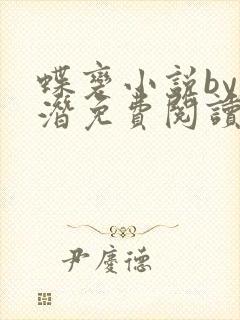 蝶变小説by
潛免費閱讀
尹慶德